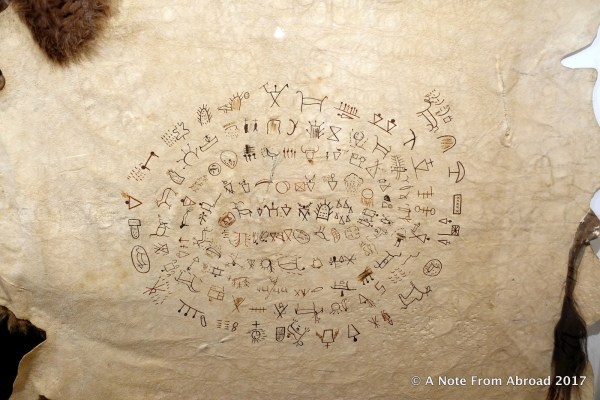 © A Note From Abroad 2017